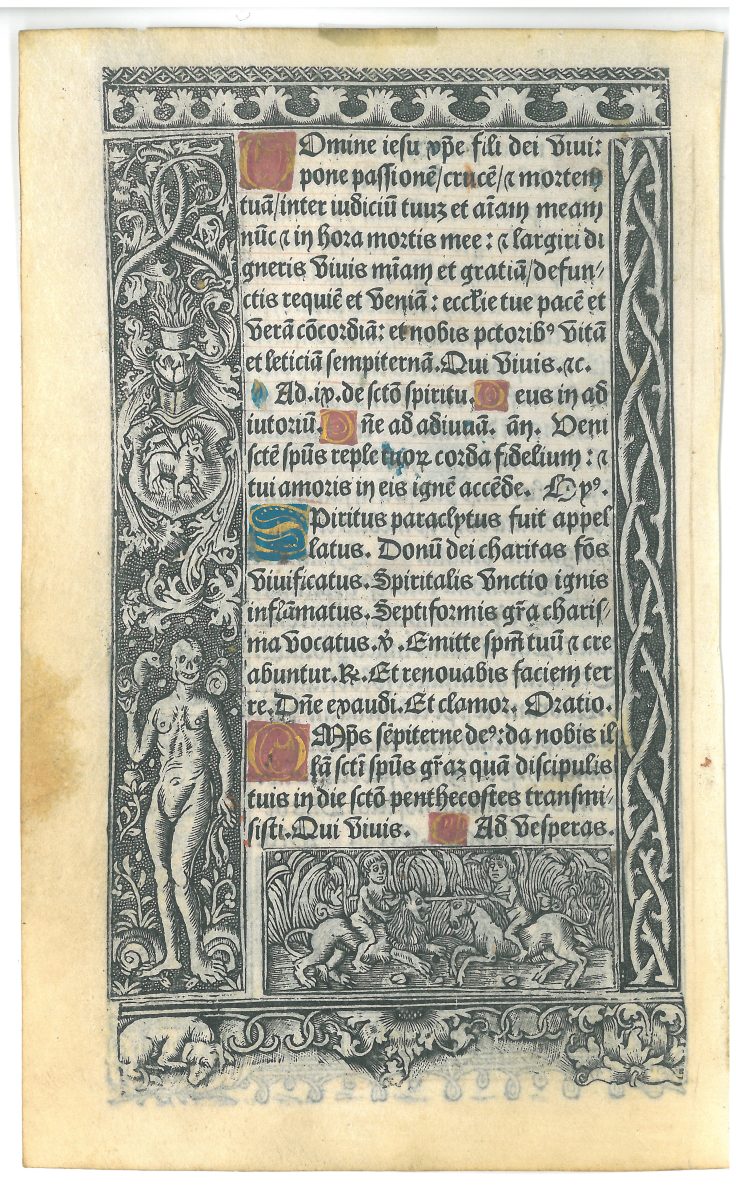 Domine iesu xp̃e fili dei viui:
pone passionẽ/crucẽ/⁊ mortem
tuã/inter iudiciũ tuuʒ et aĩam meam
nũc ⁊ in hora mortis mee: ⁊ largiri di
gneris viuis mĩam et gratiã/defun⸗
ctis requiẽ et veniã: eccl̃ie tue pacẽ et
verã cõcordiã: et nobis pctoribꝰ vitã
et leticiã sempiternã. Qui viuis. ⁊c.
Ad .ix. de sctõ spiritu. Deus in ad
iutoriũ. Dñe ad adiuuã. añ. Veni
sctẽ spũs reple tuoꝝ corda fidelium: ⁊
tui amoris in eis ignẽ accẽde. Hyꝰ.
SPiritus paraclytus fuit appel
latus. Donũ dei charitas fõs
viuificatus. Spiritalis vnctio ignis
inflãmatus. Septiformis gr̃a charis⸗
ma vocatus. ℣. Emitte spm̃ tuũ ⁊ cre
abuntur. ℞. Et renouabis faciem ter
re. Dñe exaudi. Et clamor. Oratio.
OMp̃s sẽpiterne deꝰ: da nobis il
lã sctĩ spũs gr̃aʒ quã discipulis
tuis in die sctõ penthecostes transmi⸗
sisti. Qui viuis. Ad vesperas.